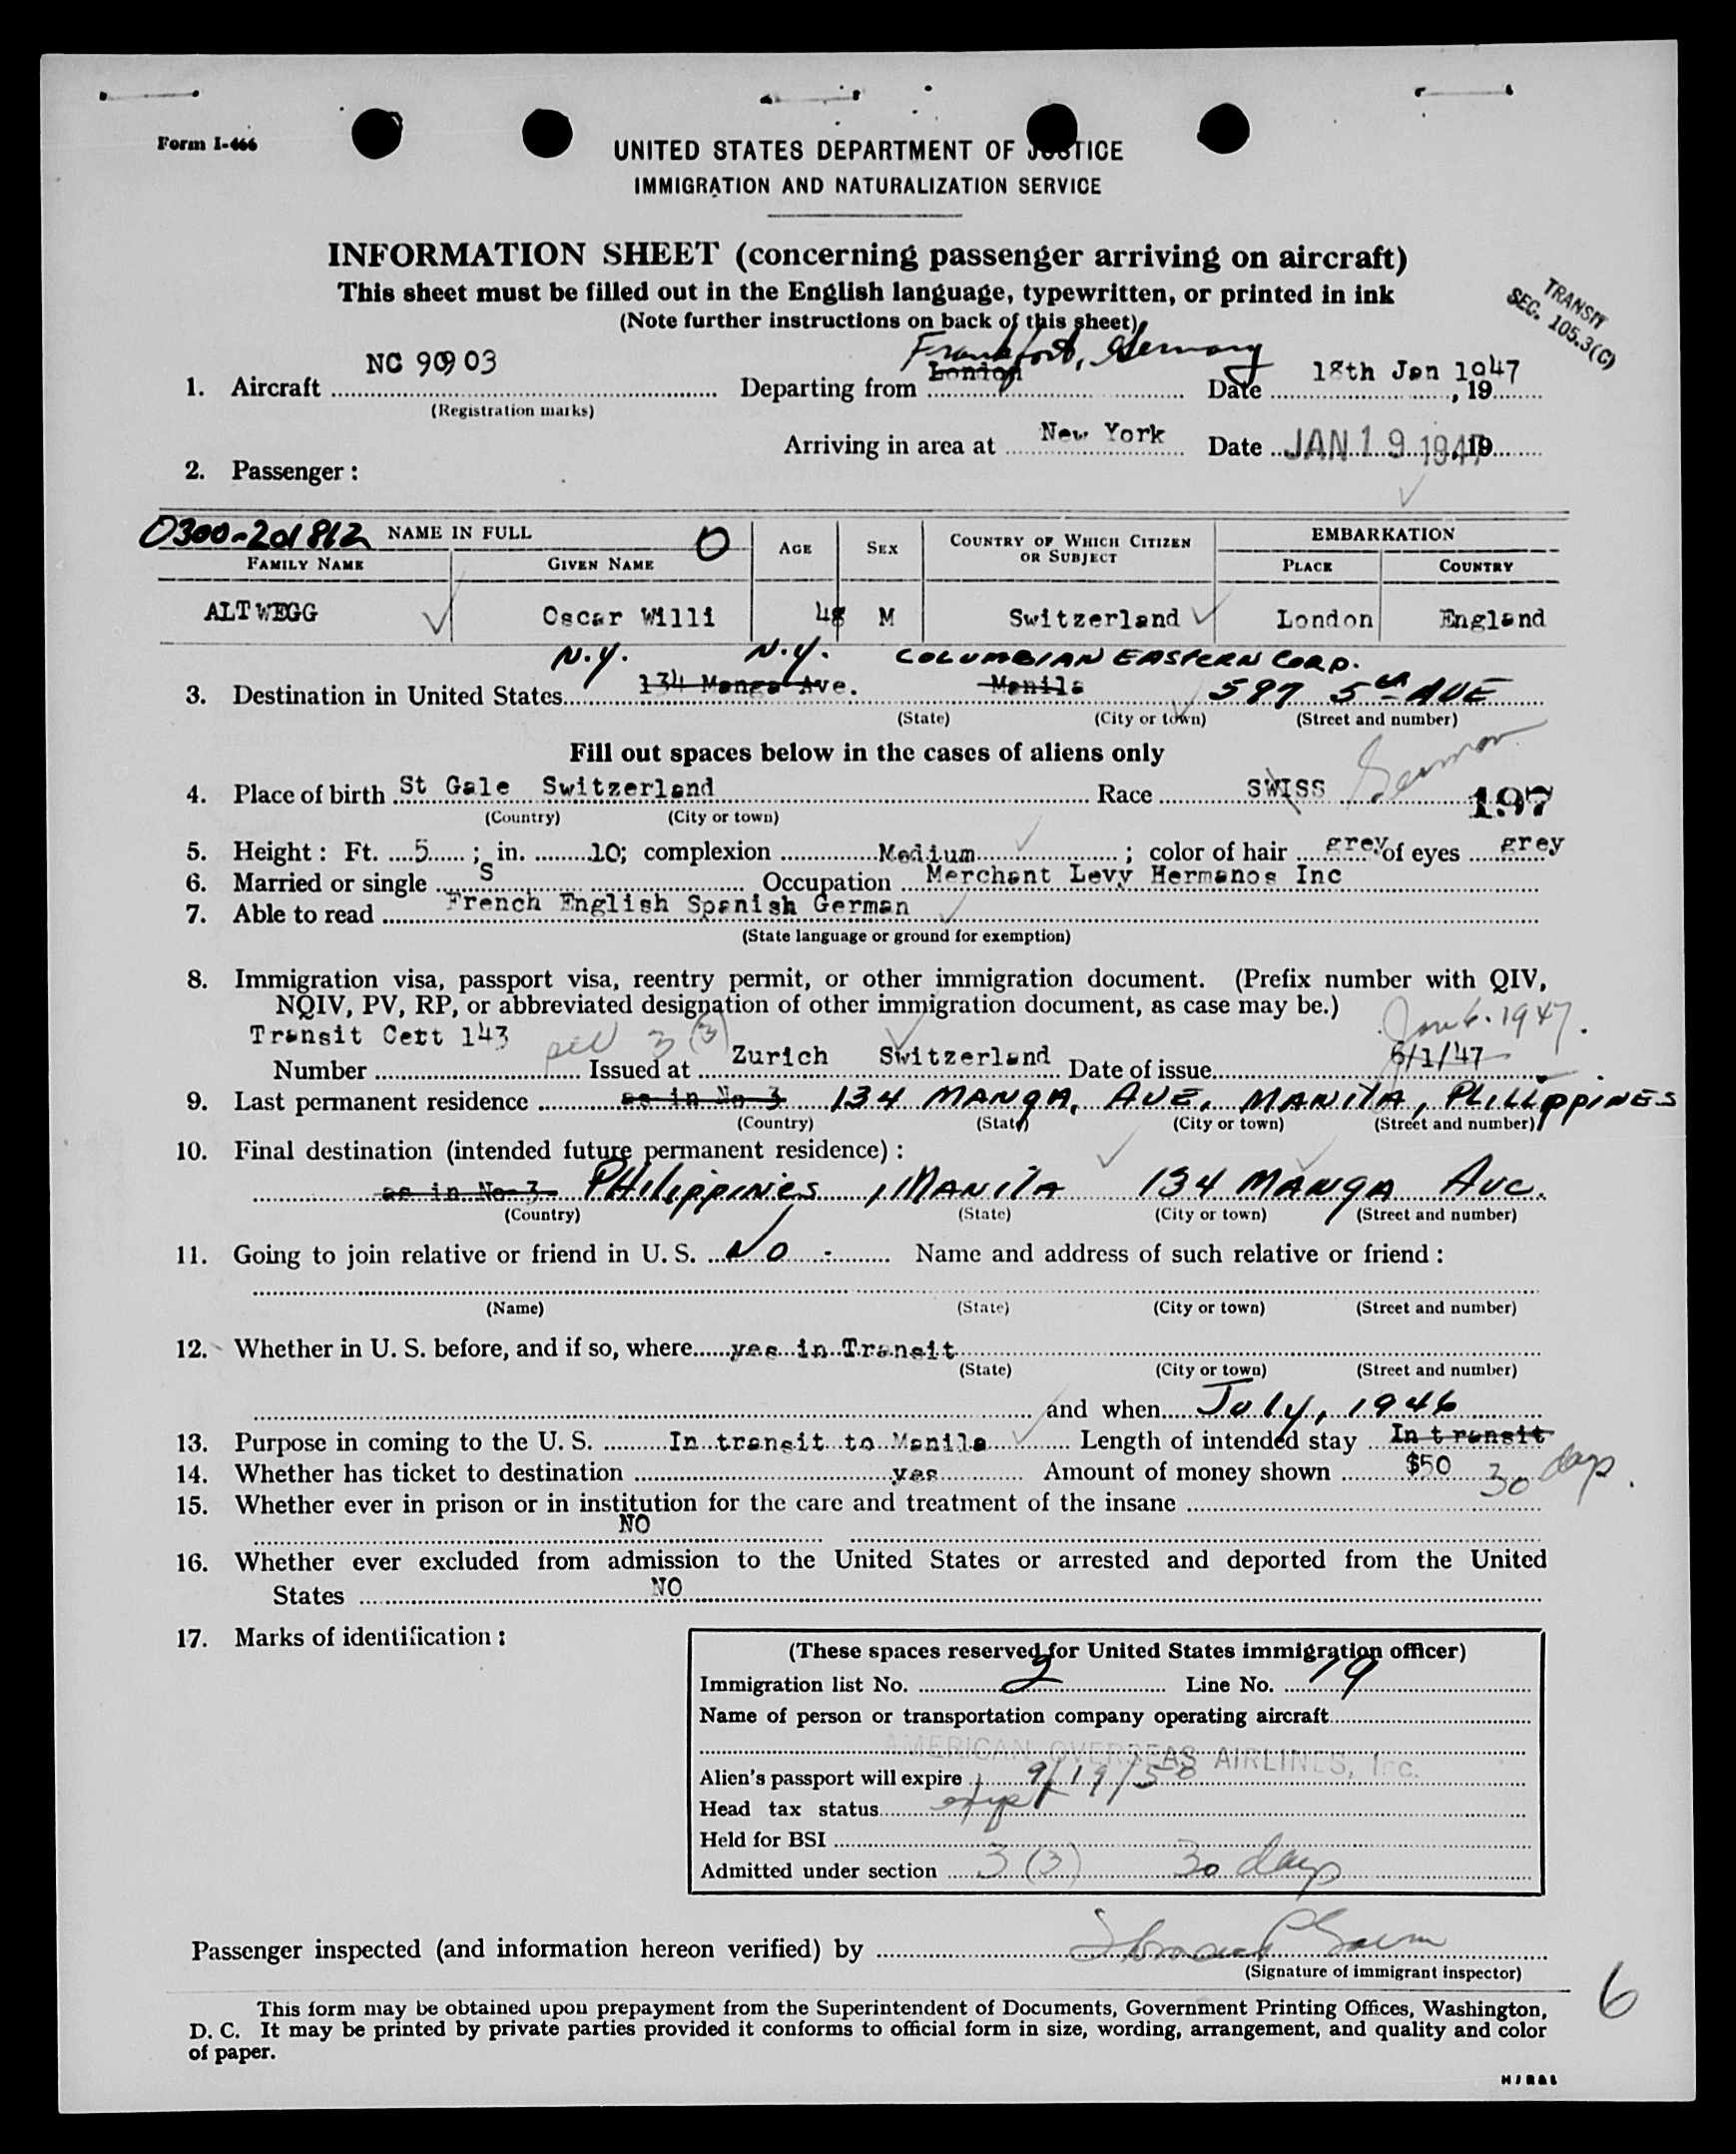 Form I-466
UNITED STATES DEPARTMENT OF JUSTICE
IMMIGRATION AND NATURALIZATION SERVICE
INFORMATION SHEET (concerning passenger arriving on aircraft)
This sheet must be filled out in the English language, typewritten, or printed in ink
(Note further instructions on back of this sheet)
TRANSIT
SEC. 105.3(C)
Frankfort, Germany
1. Aircraft NC 90903 Departing from London Date 18th Jan 1947, 19
(Registration marks)
Arriving in area at New York Date JAN 19 1947, 19
2. Passenger:
0300-201812 NAME IN FULL O AGE SEX COUNTRY OF WHICH CITIZEN OR SUBJECT EMBARKATION
FAMILY NAME GIVEN NAME PLACE COUNTRY
ALTWEGG Oscar Willi 48 M Switzerland London England
N.Y. N.Y. COLUMBIAN EASTERN CORP.
3. Destination in United States 134 Manga Ave. Manila 597 5th AVE
(State) (City or town) (Street and number)
Fill out spaces below in the cases of aliens only
4. Place of birth St Gale Switzerland Race SWISS German
(Country) (City or town)
197
5. Height: Ft. 5; in. 10; complexion Medium; color of hair grey of eyes grey
6. Married or single S Occupation Merchant Levy Hermanos Inc
7. Able to read French English Spanish German
(State language or ground for exemption)
8. Immigration visa, passport visa, reentry permit, or other immigration document. (Prefix number with QIV,
NQIV, PV, RP, or abbreviated designation of other immigration document, as case may be.)
Transit Cert 143 3(3) Jan 6. 1947.
Number Issued at Zurich Switzerland Date of issue 6/1/47
9. Last permanent residence as in No 3 134 MANGA, AVE, MANILA, PHILLIPPINES
(Country) (State) (City or town) (Street and number)
10. Final destination (intended future permanent residence):
as in No 3 PHILIPPINES, MANILA 134 MANGA AVE.
(Country) (State) (City or town) (Street and number)
11. Going to join relative or friend in U. S. NO Name and address of such relative or friend:
(Name) (State) (City or town) (Street and number)
12. Whether in U. S. before, and if so, where yes in Transit
(State) (City or town) (Street and number)
and when July, 1946
13. Purpose in coming to the U. S. In transit to Manila Length of intended stay In transit
14. Whether has ticket to destination yes Amount of money shown $50 30 days.
15. Whether ever in prison or in institution for the care and treatment of the insane
NO
16. Whether ever excluded from admission to the United States or arrested and deported from the United
States NO
17. Marks of identification:
(These spaces reserved for United States immigration officer)
Immigration list No. 2 Line No. 19
Name of person or transportation company operating aircraft
AMERICAN OVERSEAS AIRLINES, Inc.
Alien's passport will expire 9/19/50
Head tax status
Held for BSI
Admitted under section 3(3) 30 days
Passenger inspected (and information hereon verified) by
(Signature of immigrant inspector)
6
This form may be obtained upon prepayment from the Superintendent of Documents, Government Printing Offices, Washington,
D. C. It may be printed by private parties provided it conforms to official form in size, wording, arrangement, and quality and color
of paper.